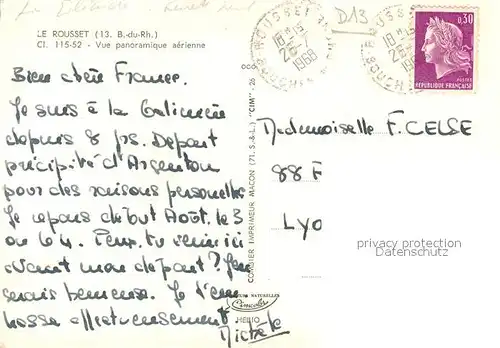 D13
LE ROUSSET (13. B.-du-Rh.)
Cl. 115-52 - Vue panoramique aérienne
ROUSSET
18 H 15
26-7
1968
0,30
POSTES
REPUBLIQUE FRANÇAISE
Bien chère France.
Je suis à la Galinière
depuis 8 jrs. Départ
précipité d'Argenton
pour des raisons personnelles
Je repars début Août. le 3
ou le 4. Peux-tu venir ici
avant mon départ? J'en
serais heureuse. Je t'em
brasse affectueusement
Michèle
COMBIER IMPRIMEUR MACON (71, S.-&-L.) "CIM"
Mademoiselle F. CELSE
88 F
Lyo
privacy protection
Datenschutz
COULEURS NATURELLES
Cimcolor
HELIO